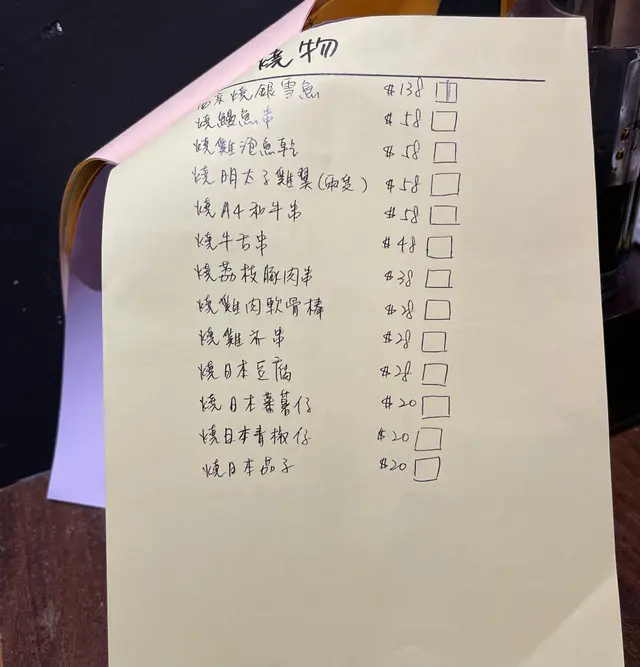 燒物
西京燒銀雪魚 $138
燒鰻魚串 $58
燒雞泡魚乾 $58
燒明太子雞翼(兩隻) $58
燒A4和牛串 $58
燒牛舌串 $48
燒荔枝豚肉串 $38
燒雞肉軟骨棒 $28
燒雞 串 $28
燒日本豆腐 $28
燒日本蕃薯仔 $20
燒日本青椒仔 $20
燒日本茄子 $20